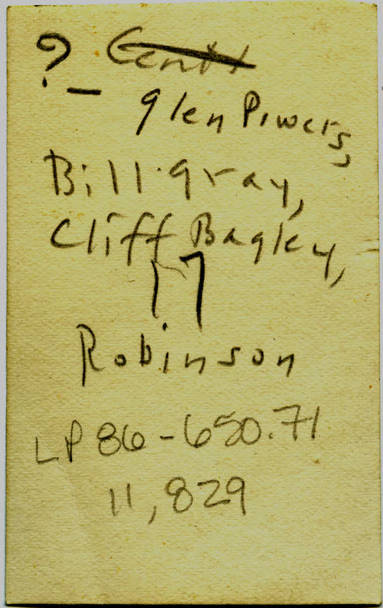 ?-
glen Powers,
Bill gray,
Cliff Bagley,
"
Robinson
LP 86-650.71
11,829